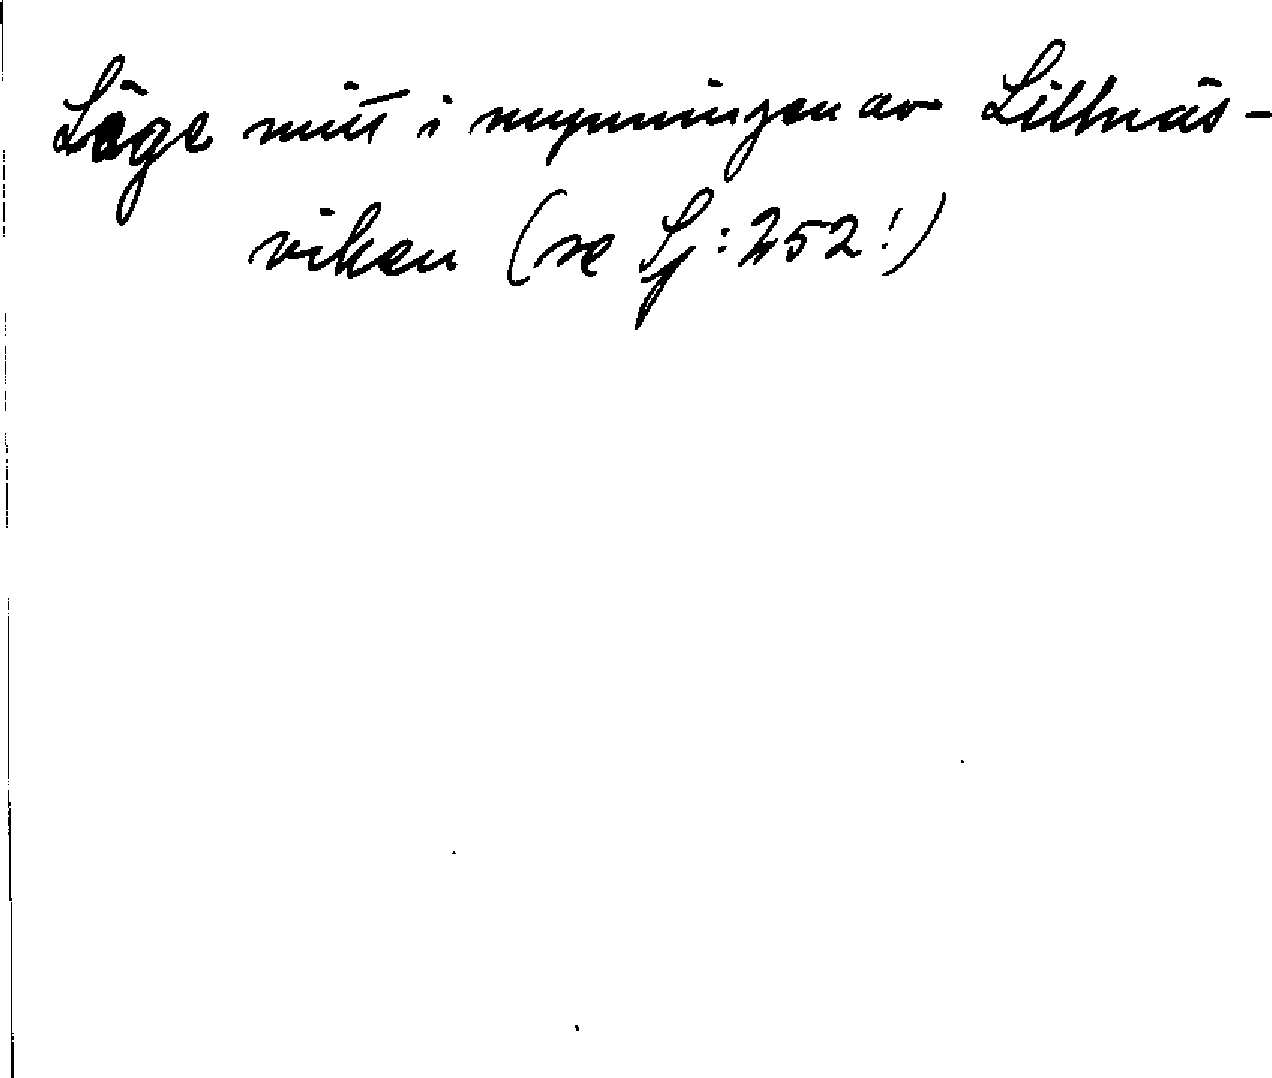 Läge mitt i mynningen av Lillnäs-
viken (se Sj: 252!)